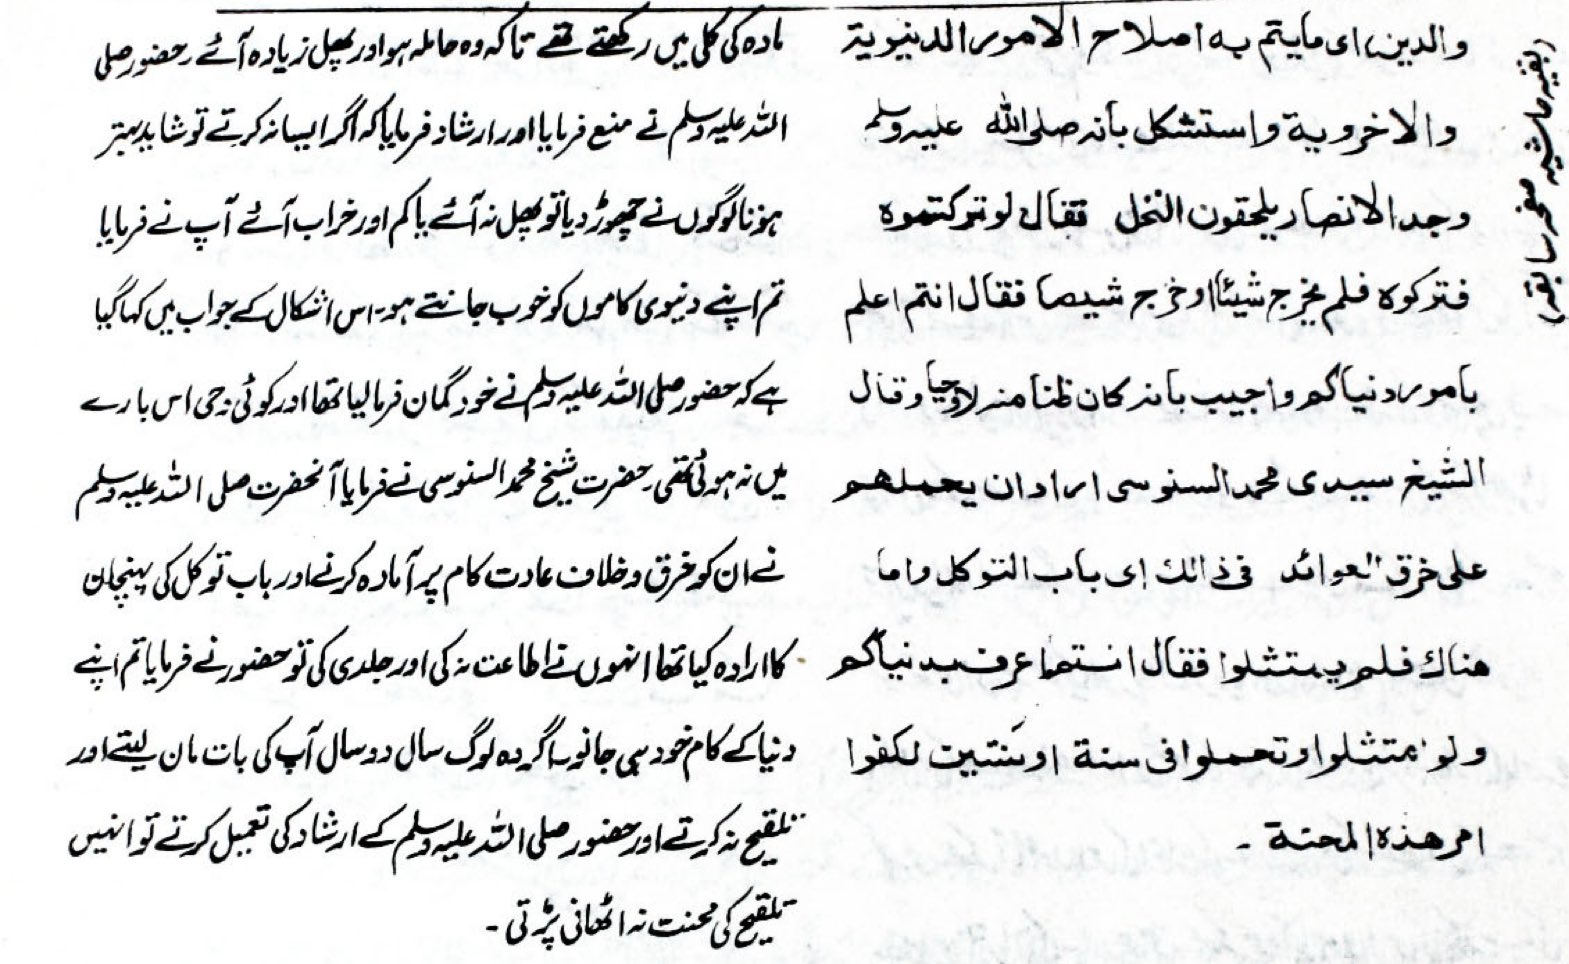 (بقیہ حاشیہ صفحہ سابقہ)
والدين، اى مايتم به اصلاح الامور الدنيوية
والاخروية واستشكل بأنه صلى الله عليه وسلم
وجد الانصار يلحقون النخل فقال لو تركتموه
فتركوه فلم يخرج شيئا اوخرج شيصا فقال انتم اعلم
بامور دنياكم واجيب بانه كان ظنا منه لاوحيا وقال
الشيخ سيدى محمد السنوسى اراد ان يحملهم
على خرق العوائد فى ذالك اى باب التوكل واما
هناك فلم يمتثلوا فقال انتم اعرف بدنياكم
ولو امتثلوا وتحملوا فى سنة او سنتين لكفوا
امر هذه المحنة -
مادہ کی کلی میں رکھتے تھے تاکہ وہ حاملہ ہو اور پھل زیادہ آئے۔ حضور صلی
اللہ علیہ وسلم نے منع فرمایا اور ارشاد فرمایا کہ اگر ایسا نہ کرتے تو شاید بہتر
ہوتا لوگوں نے چھوڑ دیا تو پھل نہ آئے یا کم اور خراب آئے آپ نے فرمایا
تم اپنے دنیوی کاموں کو خوب جانتے ہو۔ اس اشکال کے جواب میں کہا گیا
ہے کہ حضور صلی اللہ علیہ وسلم نے خود گمان فرما لیا تھا اور کوئی وحی اس بارے
میں نہ ہوئی تھی۔ حضرت شیخ محمد السنوسی نے فرمایا آنحضرت صلی اللہ علیہ وسلم
نے ان کو خرق و خلاف عادت کام پر آمادہ کرنے اور باب توکل کی پہنچان
کا ارادہ کیا تھا انہوں نے اطاعت نہ کی اور جلدی کی تو حضور نے فرمایا تم اپنے
دنیا کے کام خود ہی جانو۔ اگر وہ لوگ سال دو سال آپ کی بات مان لیتے اور
تلقیح نہ کرتے اور حضور صلی اللہ علیہ وسلم کے ارشاد کی تعمیل کرتے تو انہیں
تلقیح کی محنت نہ اٹھانی پڑتی -